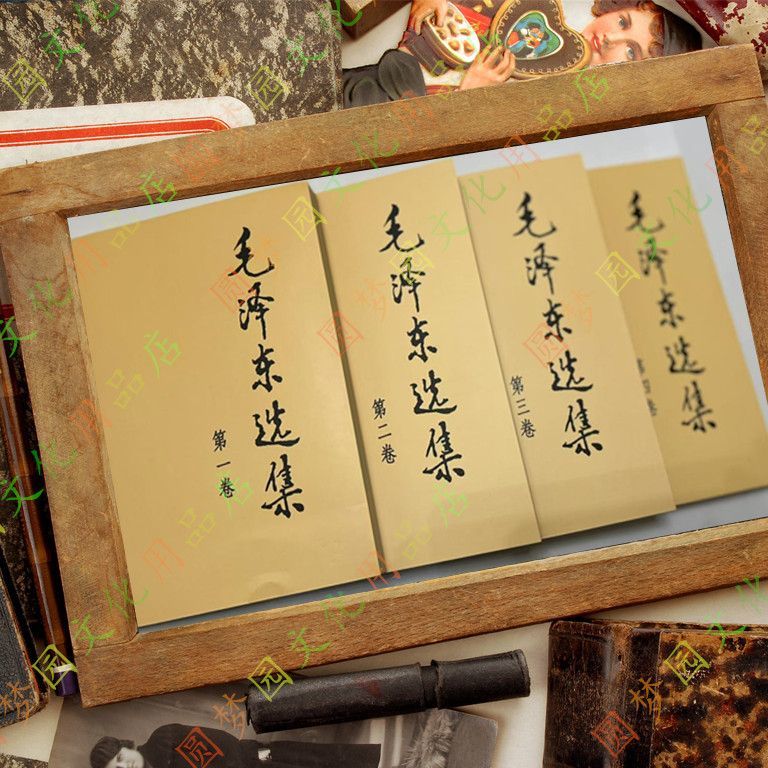 毛泽东选集
第一卷
毛泽东选集
第二卷
毛泽东选集
第三卷
毛泽东选集
第四卷
圆梦园文化用品店